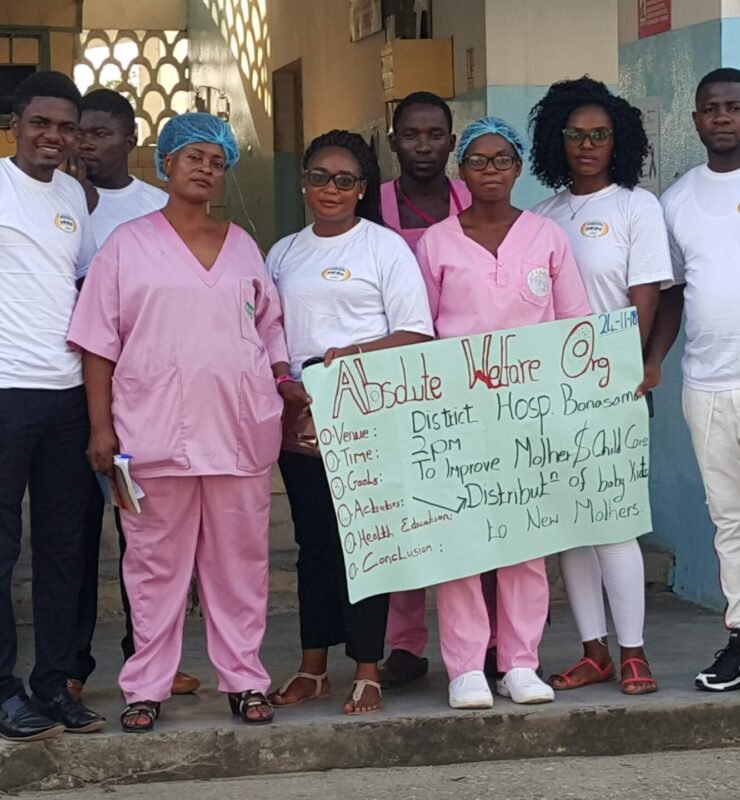 24-11-18
Absolute Welfare Org
Venue: District Hosp. Bonasama
Time: 2pm
Goals: To Improve Mother & Child Care
Activities: Distributn of baby kits
Health Education: to New Mothers.
Conclusion: